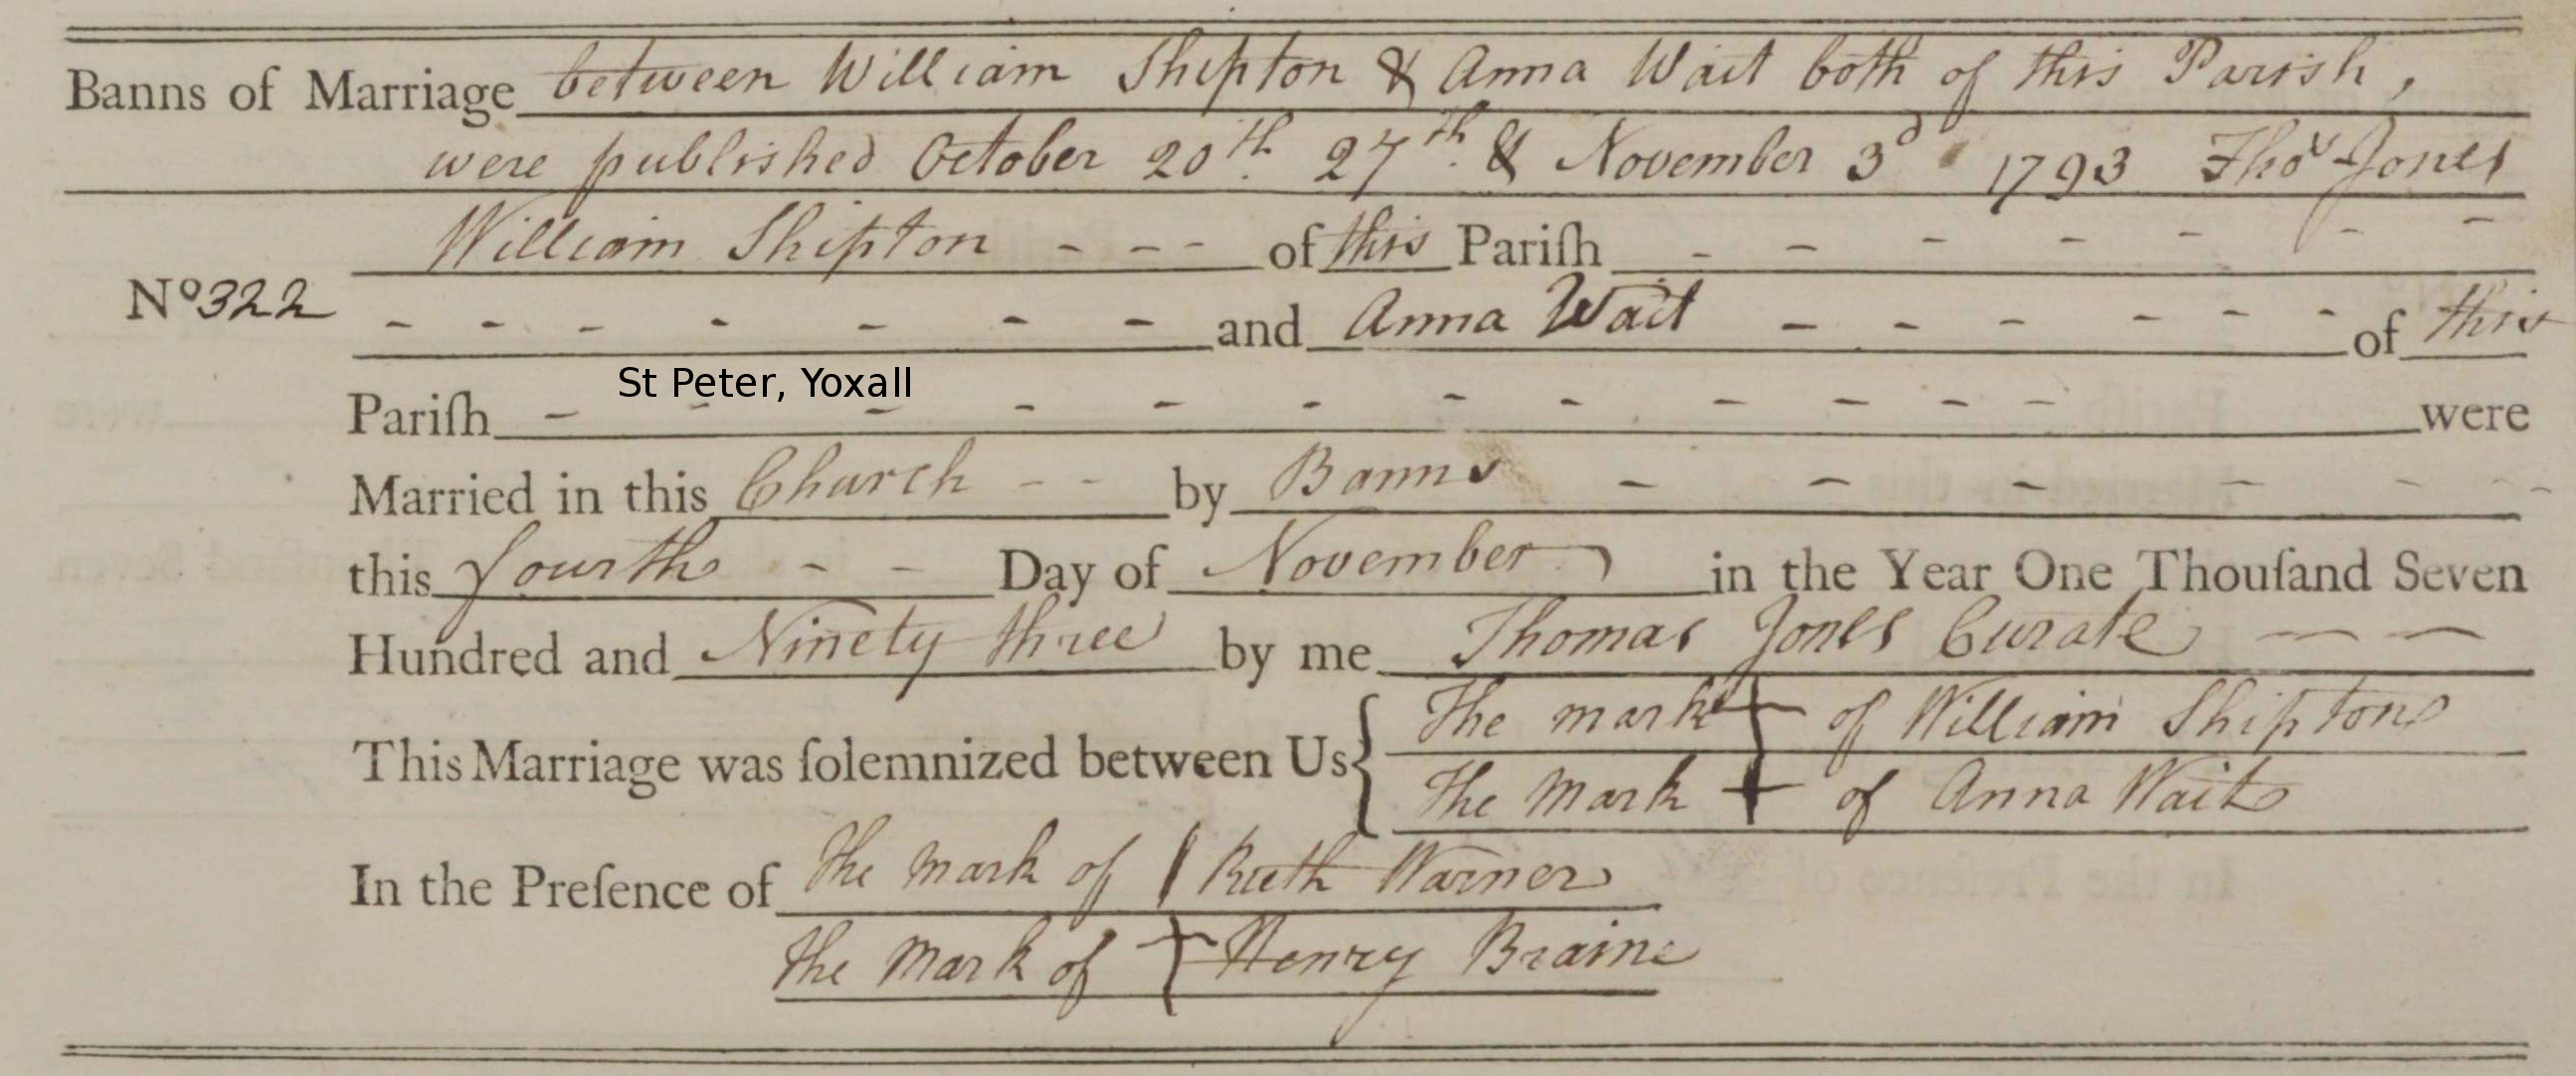 Banns of Marriage between William Shipton & Anna Wait both of this Parish,
were published October 20th 27th & November 3d 1793 Thos Jones
William Shipton - - - of this Pariſh - - - - - - -
No 322 - - - - - - - and Anna Wait - - - - - - of this
St Peter, Yoxall
Pariſh - - - - - - - - - - - - were
Married in this Church - - by Banns - - - - - -
this fourth - - Day of November in the Year One Thouſand Seven
Hundred and Ninety three by me Thomas Jones Curate - -
This Marriage was ſolemnized between Us { The mark + of William Shipton
The Mark + of Anna Wait
In the Preſence of The Mark of | Ruth Warner
The Mark of + Henry Braine